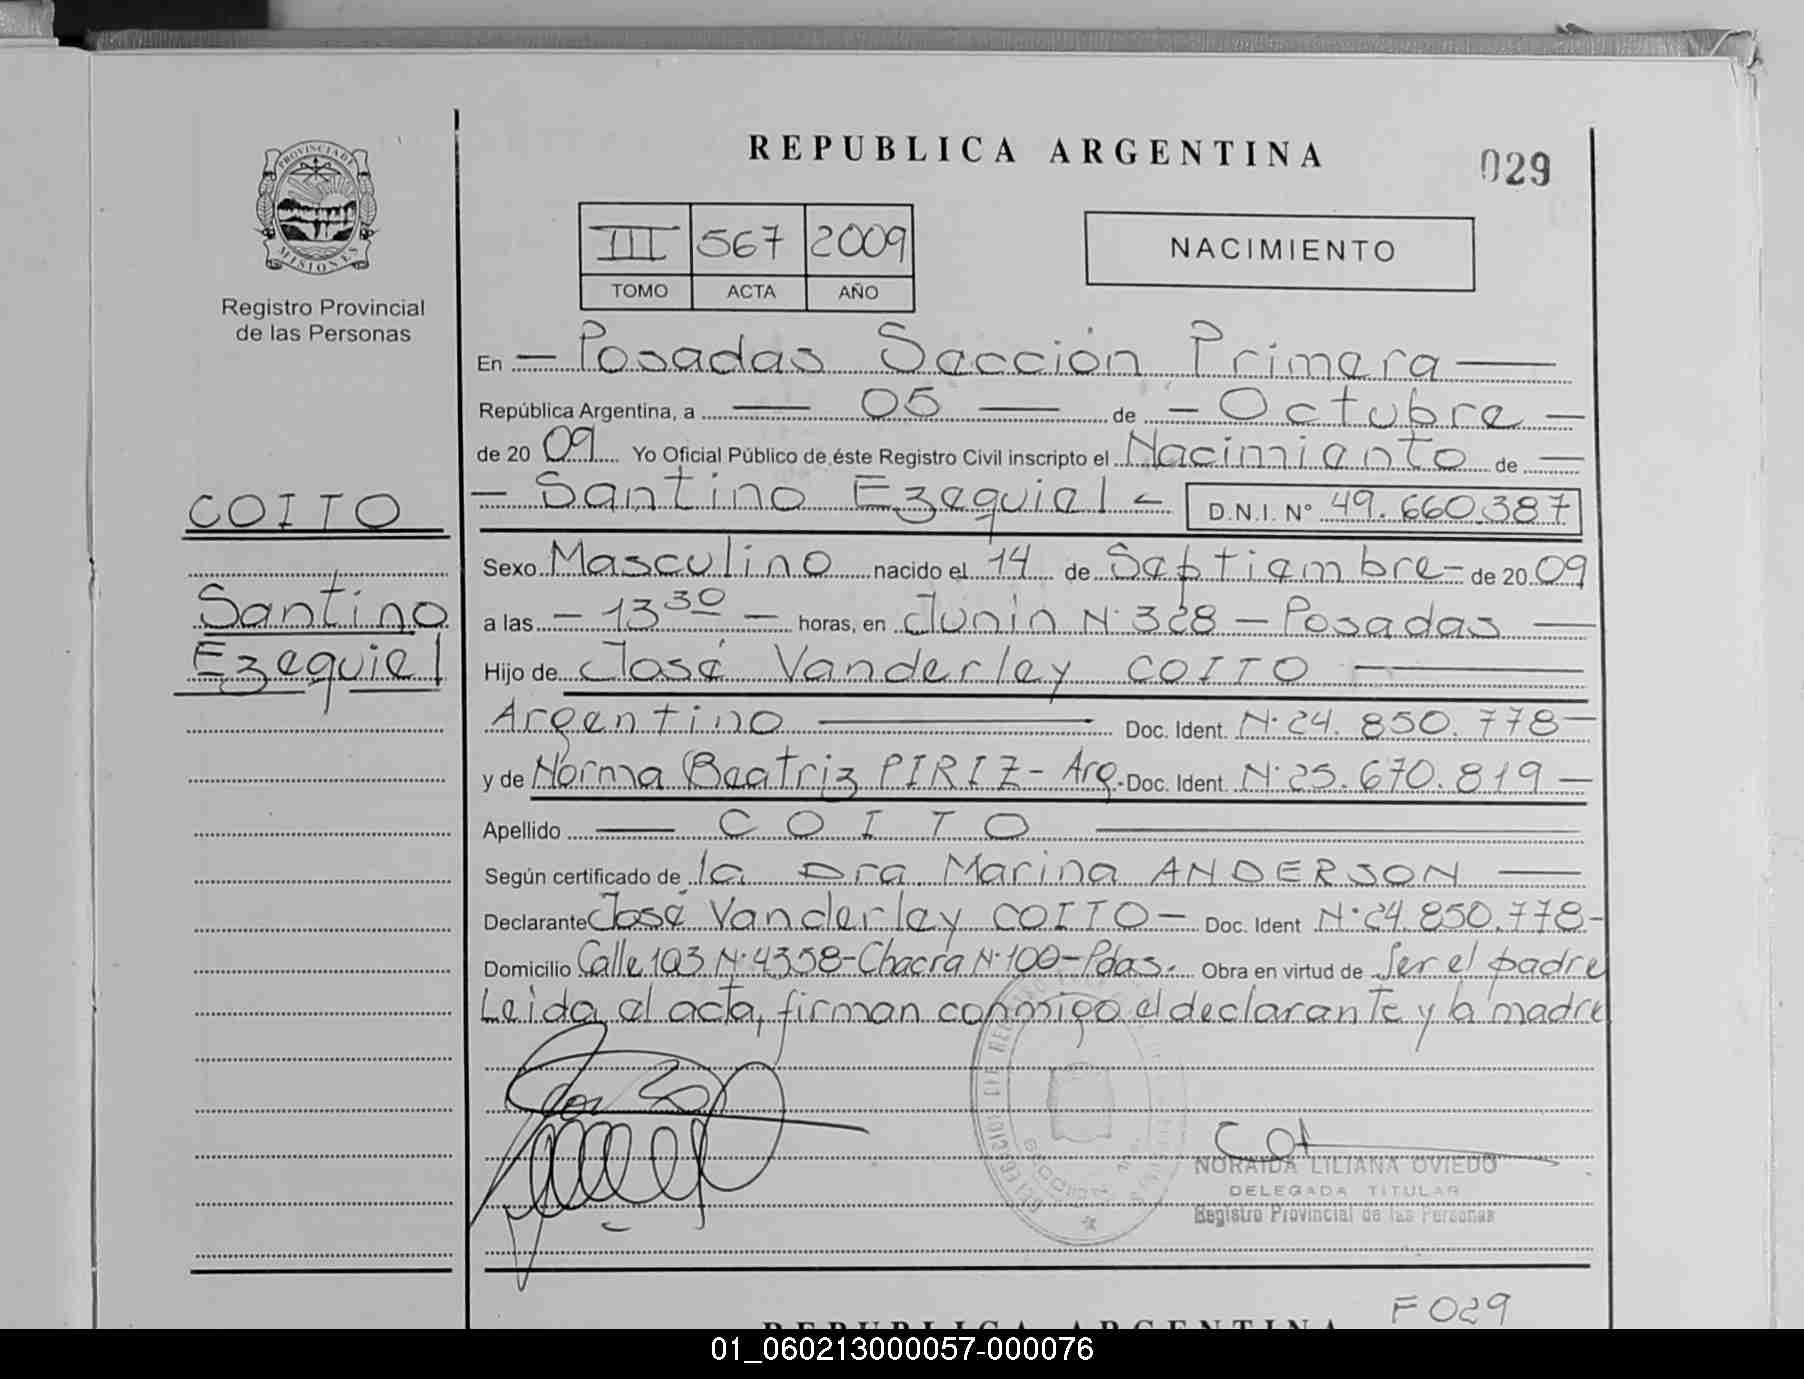 REPUBLICA ARGENTINA
029
PROVINCIA DE
MISIONES
Registro Provincial
de las Personas
III 567 2009
TOMO ACTA AÑO
NACIMIENTO
En — Posadas Sección Primera —
República Argentina, a — 05 — de — Octubre —
de 20 09 Yo Oficial Público de éste Registro Civil inscripto el Nacimiento de —
— Santino Ezequiel — D.N.I. N° 49.660.387
COITO
Santino
Ezequiel
Sexo Masculino nacido el 14 de Septiembre — de 20 09
a las — 13 30 — horas, en Junin N° 328 — Posadas —
Hijo de José Vanderley COITO —
Argentino — Doc. Ident. N° 24.850.778 —
y de Norma Beatriz PIRIZ - Arg. Doc. Ident. N° 25.670.819 —
Apellido — COITO —
Según certificado de la Dra Marina ANDERSON —
Declarante José Vanderley COITO — Doc. Ident N° 24.850.778 -
Domicilio Calle 103 N° 4358 - Chacra N° 100 - Pdas. Obra en virtud de Ser el padre
Leida el acta, firman conmigo el declarante y la madre
NORAIDA LILIANA OVIEDO
DELEGADA TITULAR
Registro Provincial de las Personas
F 029
REPUBLICA ARGENTINA
01_060213000057-000076